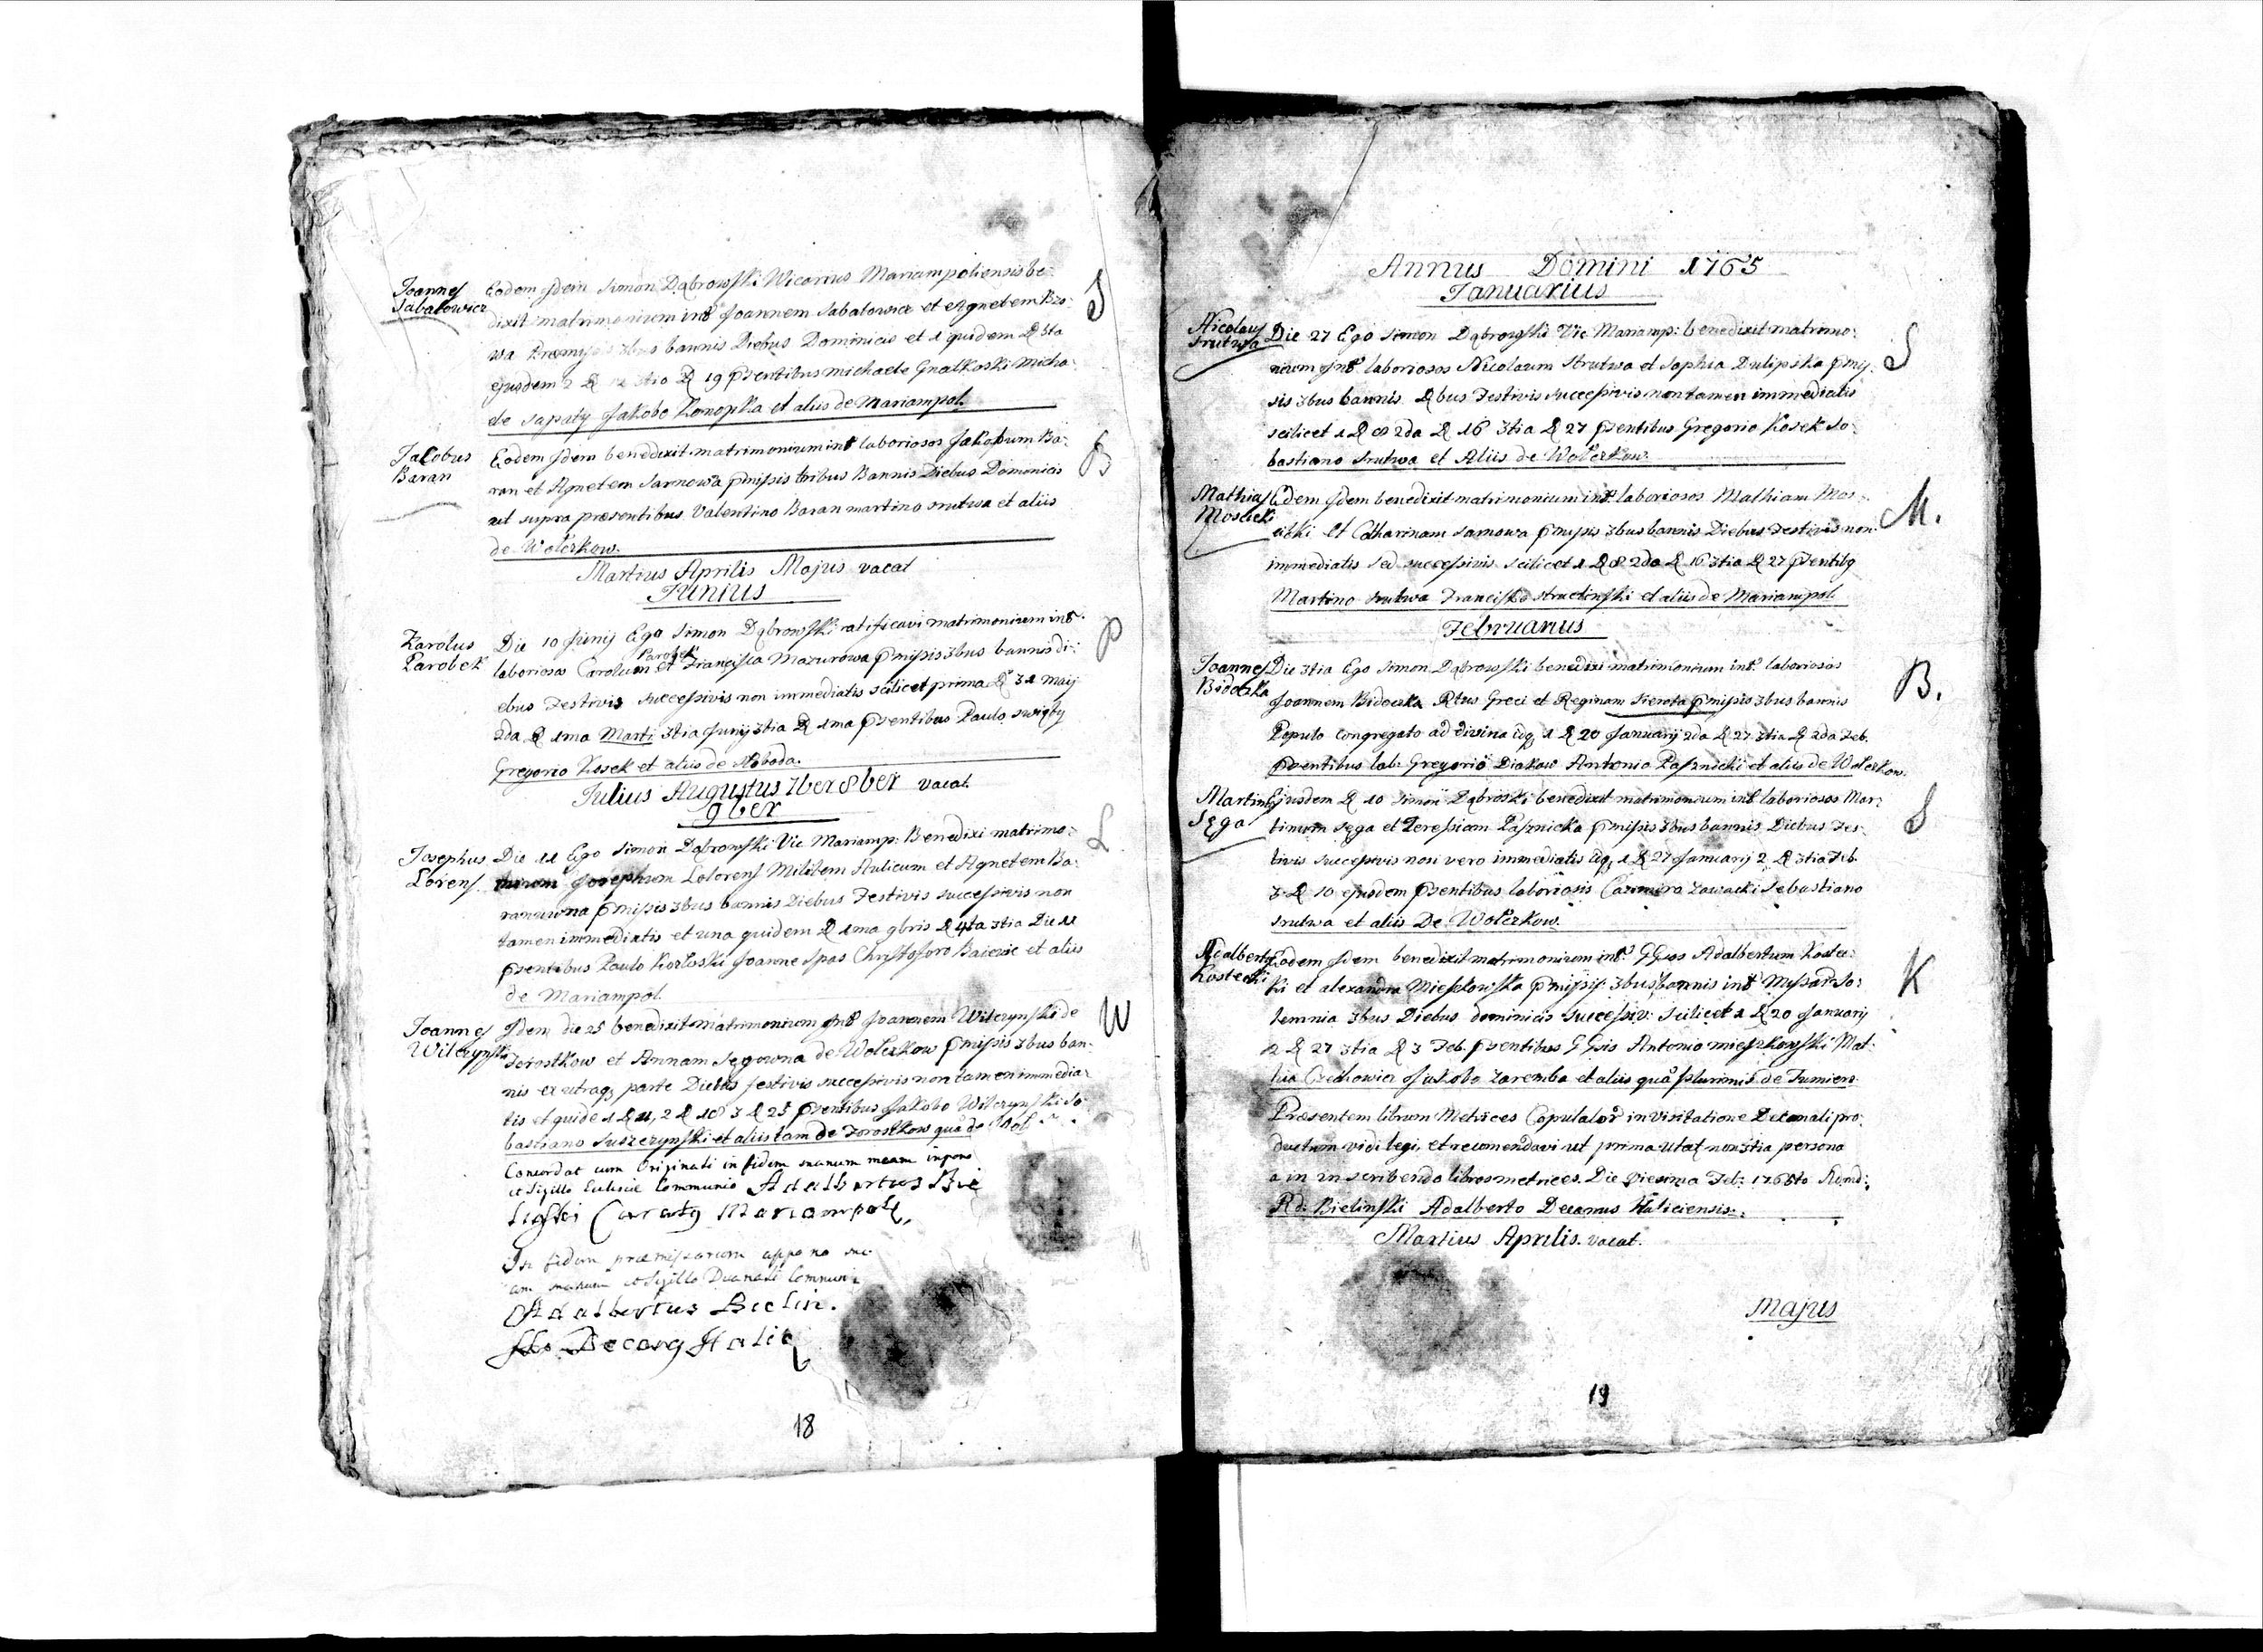 Joannes Sabatowicz
Eodem Idem Simon Dąbrowski Wicarius Mariampoliensis be:
dixit matrimonium int Joannem Sabatowicz et Agnetem Bzo:
wa bannis Diebus Dominicis et 1 quidem D 5ta
ejusdem 2 D 12 3tio D 19 psentibus Michaele Gnatkoski Micha:
ele Sapaty Jakobo Konopka et aliis de Mariampol.
S
Jacobus Baran
Eodem Idem benedixit matrimonium int laboriosos Jakobum Ba:
ran et Agnetem Sarnowa pmissis tribus Bannis Diebus Dominicis
ut supra præsentibus Valentino Baran Martino Srutwa et aliis
de Wołczkow.
B
Martius Aprilis Majus vacat
Junius
Karolus Parobek
Die 10 Junij Ego Simon Dąbrowski ratificavi matrimonium int
laboriosos Carolum Parobek et Francisca Mazurowa pmissis 3bus bannis di:
ebus Festivis successivis non immediatis scilicet prima D 31 Maij
2da D 1ma Marti 3tia Junij 3tia D 1ma psentibus Paulo Swięty
Gregorio Kosek et aliis de Słoboda.
P
Julius Augustus 7ber 8ber vacat
9ber
Josephus Lorens
Die 11 Ego Simon Dąbrowski Vic Mariamp: Benedixi matrimo:
Josephum Lolorens Militem Aulicum et Agnetem Ba:
ranowna pmissis 3bus bannis Diebus Festivis successivis non
tamen immediatis et una quidem D 1ma 9bris D 4ta 3tia Die 11
psentibus Paulo Kozłoski Joanne Spas Christoforo Baiewic et aliis
de Mariampol.
L
Joannes Wilczynski
Idem die 25 benedixit matrimonium Int Joannem Wilczynski de
Jorostkow et Annam Segowna de Wołczkow pmissis 3bus ban:
nis ex utraq parte Diebus festivis successivis non tamen immedia:
tis et quide 1 D 11, 2 D 18 3 D 25 psentibus Jakobo Wilczynski Se
bastiano Suszczynski et aliis tam de Jorostkow quā de Woł
W
Concordat cum Originali in fidem manum meam impono
et Sigillo Eclesiæ Communio Adalbertus Bie
linski Curatg Mariampolg
In fidem præmissorum appono me
am manum et Sigillo Decanali Communi
Adalbertus Bielin.
ski Decang Halicg
18
Annus Domini 1765
Januarius
Nicolaus Srutwa
Die 27 Ego Simon Dąbrowski Vic Mariamp: benedixit matrimo:
nium Int laboriosos Nicolaum Srutwa et Sophia Dulipska pmis:
sis 3bus bannis Dbus Festivis successivis non tamen immediatis
scilicet 1 D 8 2da D 16 3tia D 27 psentibus Gregorio Kosek Se:
bastiano Srutwa et Aliis de Wołczkow.
S
Mathias Moscicki
Eodem Idem benedixit matrimonium int laboriosos Mathiam Mos:
cicki et Catharinam Sarnowa pmissis 3bus bannis Diebus Festivis non
immediatis Sed successivis scilicet 1 D 8 2da D 16 3tia D 27 psentibg
Martino Srutwa Francisko Structinski et aliis de Mariampol.
M.
Februarius
Joannes Bidoczka
Die 3tia Ego Simon Dąbrowski benedixi matrimonium int laboriosos
Joannem Bidoczka Rtus Greci et Reginam Sierota pmissis 3bus bannis
Populo Congregato ad divina 1 D 20 Januarij 2da D 27 3tia D 2da Feb.
psentibus lab: Gregorio Diakow Antonio Pasznicki et aliis de Wołczkow.
B.
Martinus Sęga
Ejusdem D 10 Simon Dąbroski benedixit matrimonium int laboriosos Mar:
tinum Sęga et Teressiam Pasznicka pmissis 3bus bannis Diebus Fes:
tivis successivis non vero immediatis 1 D 27 Januarij 2 D 3tia Feb.
3 D 10 ejusdem psentibus laboriosis Cazimiro Zawacki Sebastiano
Srutwa et aliis De Wołczkow.
S
Adalbertg Kostecki
Eodem Idem benedixit matrimonium int GGsos Adalbertum Koste:
ki et alexandra Mieszkowska pmissis 3bus bannis int Missar So:
lemnia 3bus Diebus dominicis successiv: Scilicet 1 D 20 Januarij
2 D 27 3tia D 3 Feb. psentibus GGsis Antonio Mieszkowski Mat:
hia Czechowicz Jakobo Zaremba et aliis quā plurimis de Tumierz.
K
Præsentem librum Metrices Copulator in Visitatione Decanali pro:
ductum vidi legi, et recomendavi ut prima utat non 3tia persona
in inscribendo libros metrices. Die Viesima Feb: 1765to
Rd: Bielinski Adalberto Decanus Haliciensis.
Martius Aprilis vacat.
Majus
19